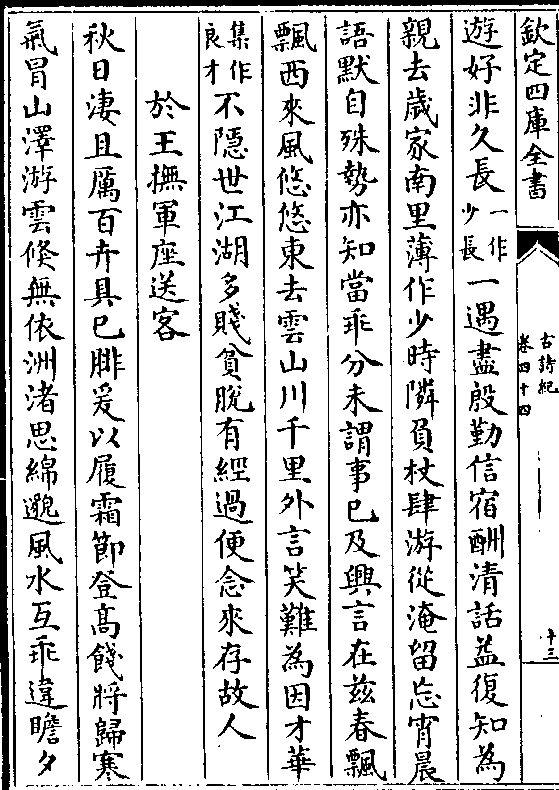 欽定四庫全書
古詩紀
卷四十四
十三
遊好非久長一作少長一遇盡殷勤信宿酬清話益復知為
親去歲家南里薄作少時隣負杖肆游從淹留忘宵晨
語默自殊勢亦知當乖分未謂事已及興言在茲春飄
飄西來風悠悠東去雲山川千里外言笑難為因才華
集作良才不隱世江湖多賤貧脫有經過便念來存故人
於王撫軍座送客
秋日淒且厲百卉具已腓爰以履霜節登高餞將歸寒
氣冒山澤游雲倐無依洲渚思綿邈風水互乖違瞻夕